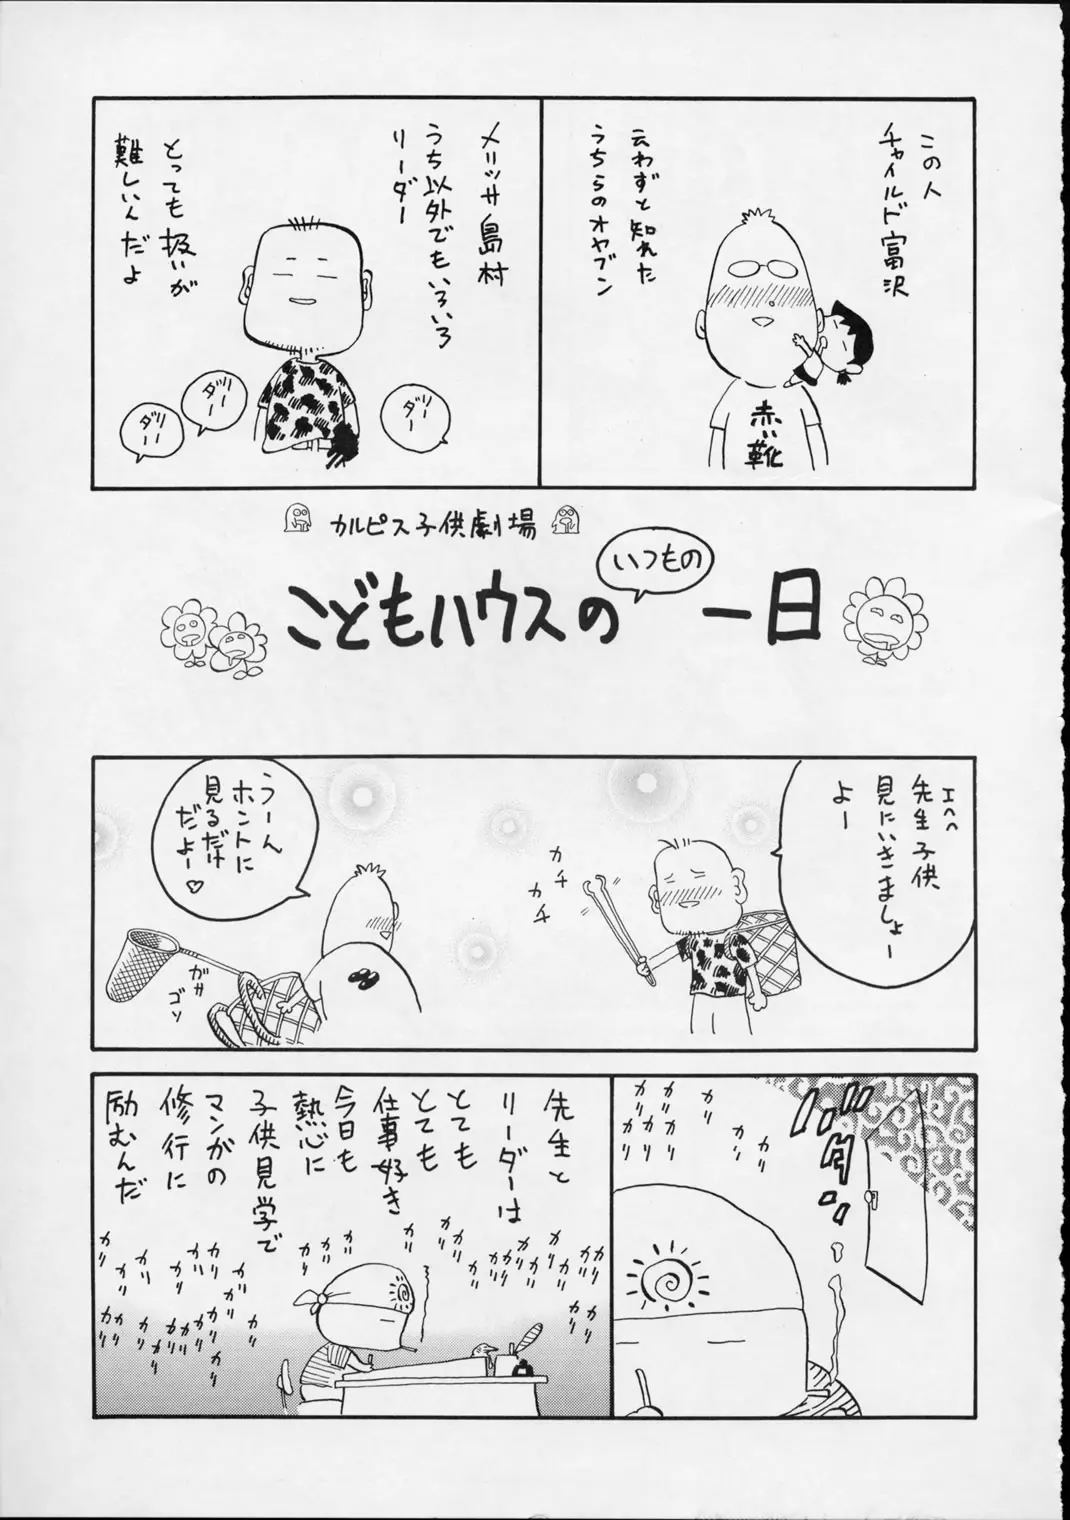 この人
チャイルド富沢
云わずと知れた
うちらのオヤブン
赤い靴
メリッサ島村
うち以外でもいろいろ
リーダー
とっても扱いが
難しいんだよ
リーダー
リーダー
リーダー
カルピス子供劇場
こどもハウスの
いつもの
一日
エヘヘ
先生子供
見にいきましょー
よー
カチ
カチ
うーん
ホントに
見るだけ
だよー♡
ガサ
ゴソ
バタン
カリ
カリ
カリ
カリ
カリ
カリ
カリ
カリ
先生と
リーダーは
とても
とても
仕事好き
今日も
熱心に
子供見学で
マンガの
修行に
励むんだ
カリ
カリ
カリ
カリ
カリ
カリ
カリ
カリ
カリ
カリ
カリ
カリ
カリ
カリ
カリ
カリ
カリ
カリ
カリ
カリ
カリ
カリ
カリ
カリ
カリ
カリ
カリ
カリ
カリ
カリ